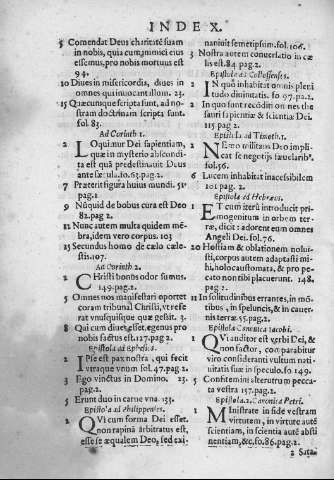 INDEX.
5 Comendat Deus charitaté suam
in nobis, quia cum inimici eius
essemus, pro nobis mortuus est
94.
10 Diues in misericordia, diues in
omnes qui inuocant illum. 23.
15 Quæcunque scripta sunt, ad no-
stram doctrinam scripta sunt.
fol. 83.
Ad Corinth 1.
2 LOquimur Dei sapientiam,
quæ in mysterio abscondi-
ta est quā predestinauit Deus
ante sæcula.fo.63.pag.2.
7 Præterit figura huius mundi. 51.
pag.1.
9 Nūquid de bobus cura est Deo
82.pag 2.
12 Nunc autem multa quidem mē-
bra, idem vero corpus. 103
15 Secundus homo de cælo cæle-
stis.107.
Ad Corinth 2.
2 CHristi bonus odor sumus.
149.pag.2.
5 Omnes nos manifestari oportet
coram tribunal Christi, vt refe
rat vnusquisque quæ gessit. 3.
8 Qui cum diues esset, egenus pro
nobis factus est.127.pag.2.
Epistola ad Ephesios.
2 IPse est pax nostra, qui fecit
vtraque vnum fol.47.pag.2.
3 Ego vinctus in Domino. 23.
pag.2.
5 Erunt duo in carne vna. 153.
Epistola ad Philippenses.
2 QVi cum forma Dei esset.
non rapinā arbitratus est,
esse se æqualem Deo, sed exi-
naniuit semetipsum.fol.106.
3 Nostra autem conuersatio in cæ
lis est.84 pag.2.
Epistola ad Collossenses.
2 IN quo inhabitat omnis pleni
tudo diuinitatis. fo 97.pa.2.
2 In quo sunt recōditi omnes the
sauri sapientiæ & scientiæ Dei.
115 pag 2.
Epistola ad Timoth.1.
2 NEmo militans Deo impli-
cat se negotijs sæcularibꝰ.
fol.56.
6 Lucem inhabitat inaccesibilem
101 pag. 2.
Epistola ad Hebræos.
1 ET cum iterū introducit pri-
mogenitum in orbem ter-
ræ, dicit: adorent eum omnes
Angeli Dei.fol.76.
20 Hostiam & oblationem nolui-
sti, corpus autem adaptasti mi
hi, holocaustomata, & pro pe-
cato non tibi placuerunt. 148.
pag 2.
11 In solitudinibus errantes, in mō-
tibus, in speluncis, & in cauer-
nis terræ.55.pag.2.
Epistola Canonica Iacobi.
1 QVi auditor est verbi Dei, &
non factor, comparabitur
viro consideranti vultum nati-
uitatis suæ in speculo.fo.149.
5 Confitemini alterutrum pecca-
ta vestra 157.pag.2.
Epistola.2.Canonica Petri.
1 MInistrate in fide vestram
virtutem, in virtute autē
scientiam, in scientia autē absti
nentiam, &c.fo.86.pag.2.
2 Sata-